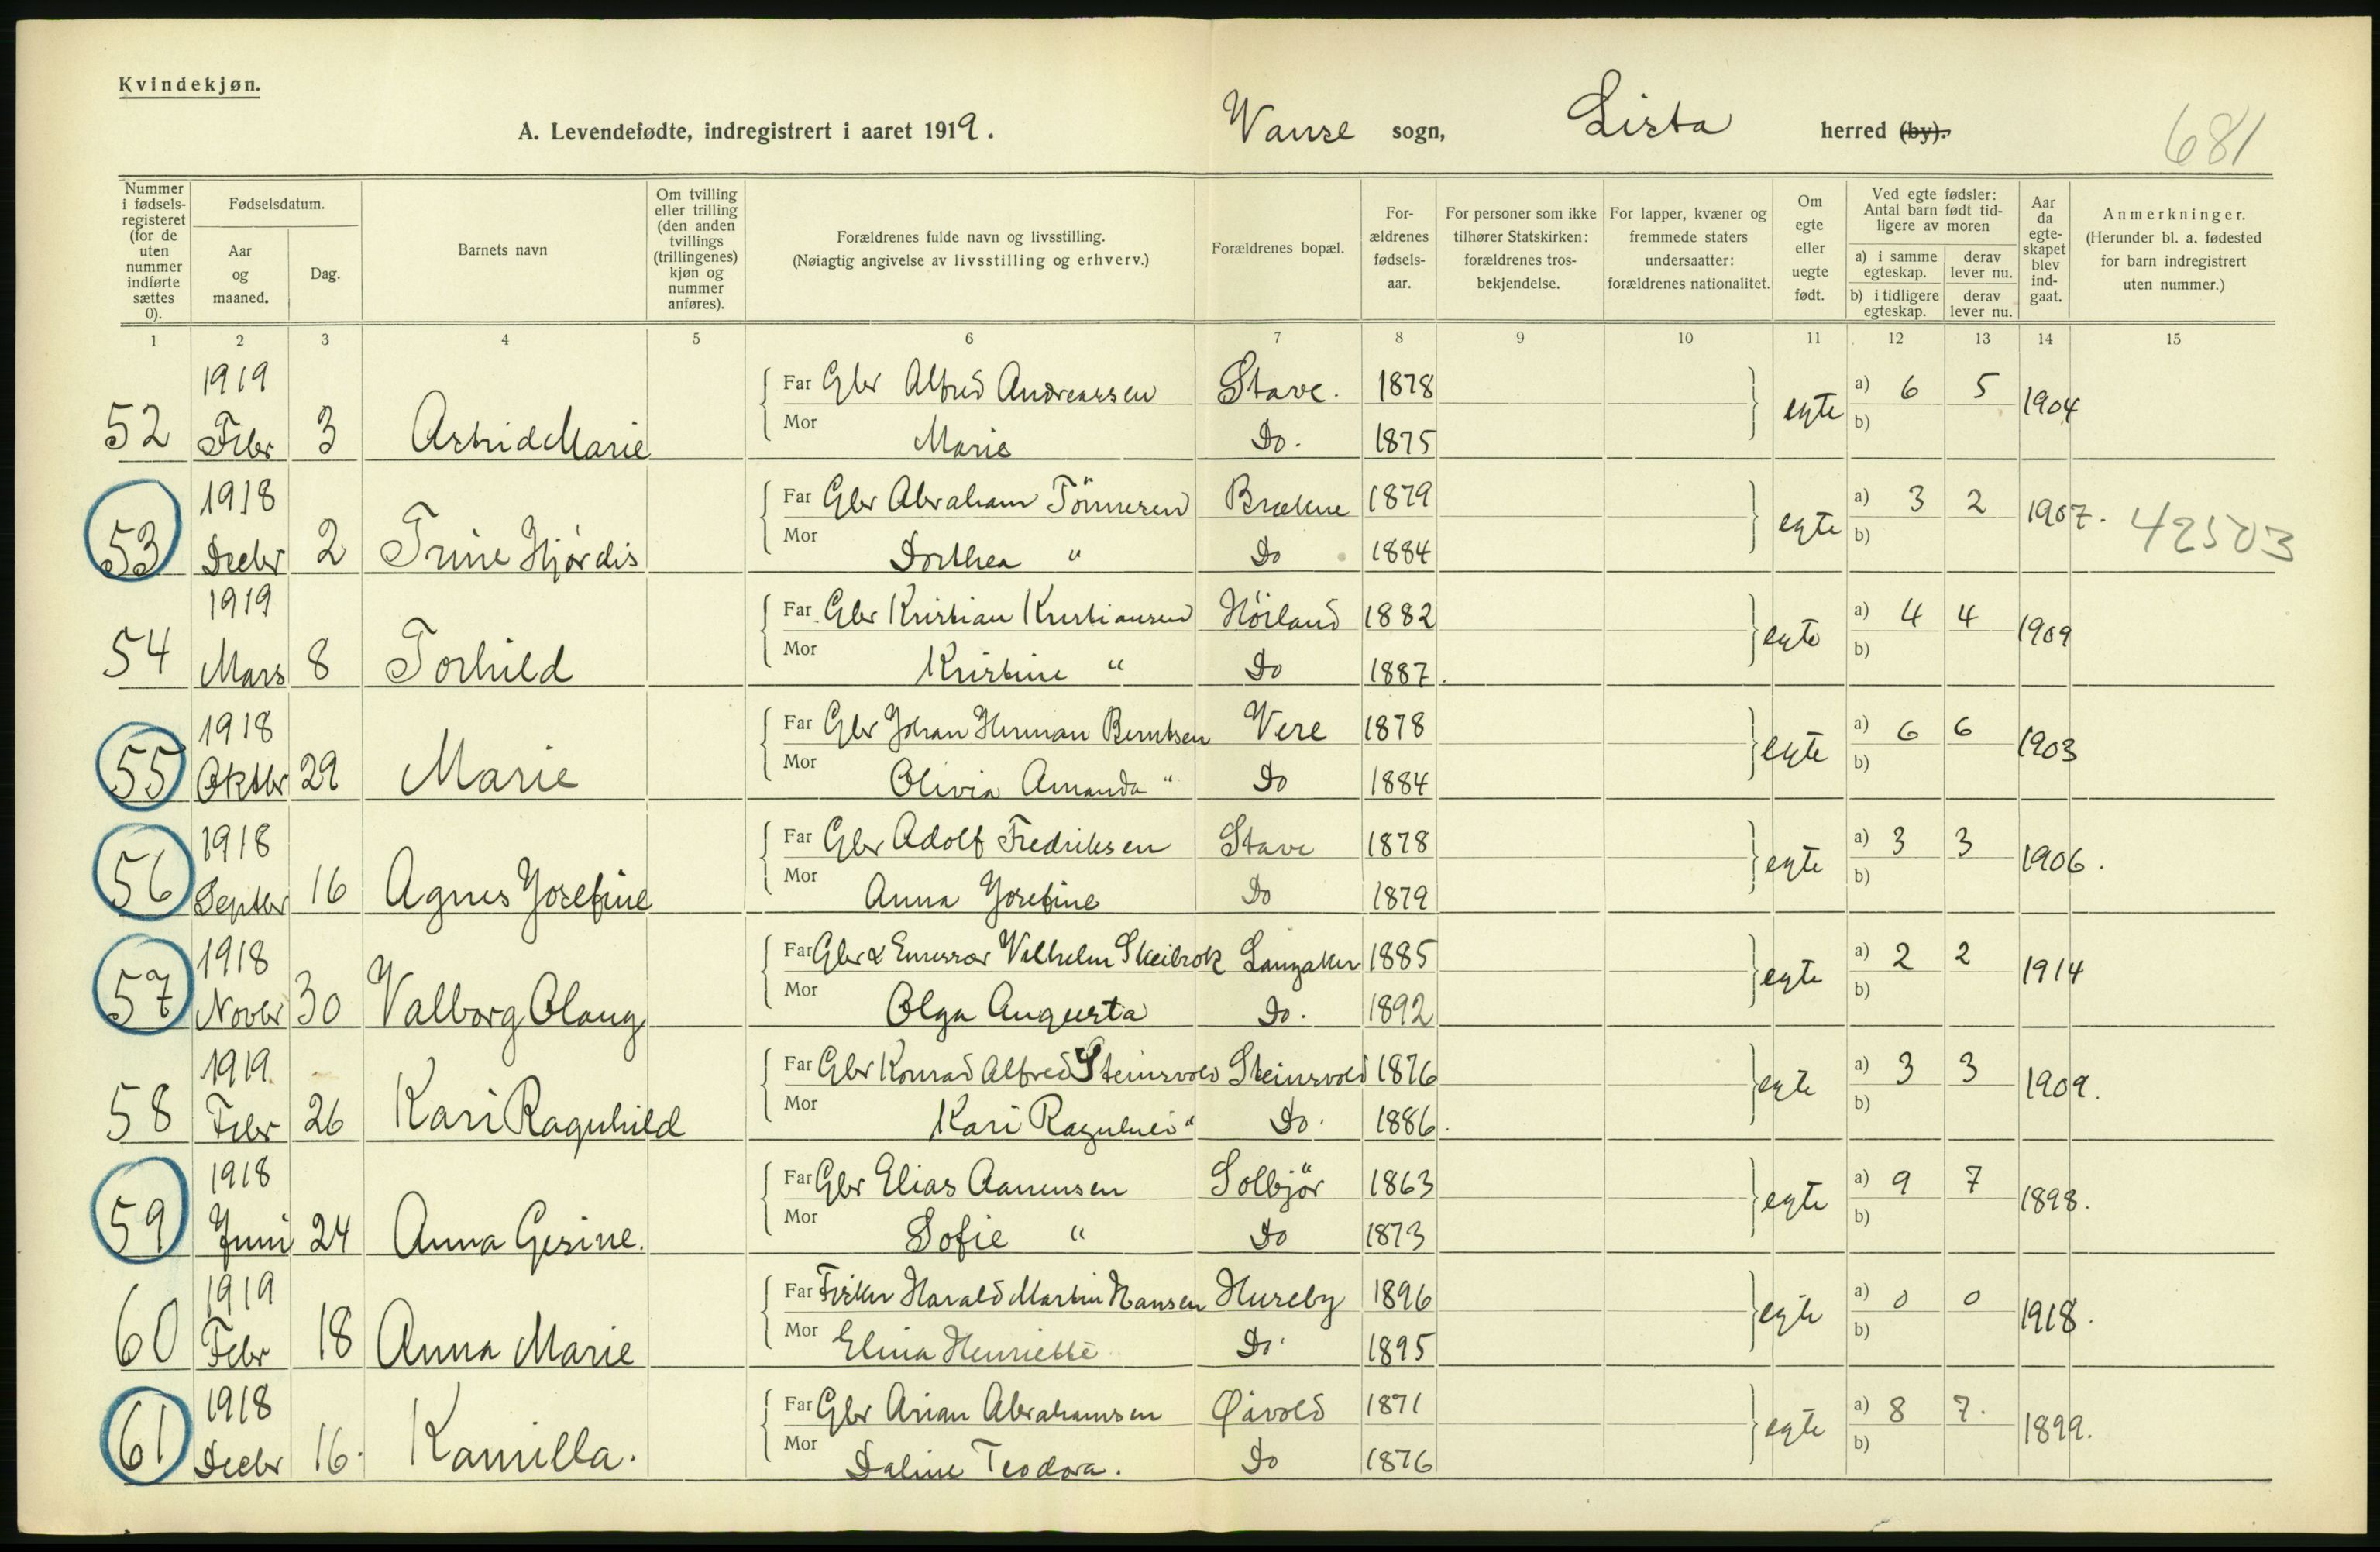 Kvindekjøn.
A. Levendefødte, indregistrert i aaret 1919. Vanse sogn, Lista herred (by). 681
Nummer i fødsels-registeret (for de uten nummer indførte sættes 0).
Fødselsdatum.
Aar og maaned.
Dag.
Barnets navn
Om tvilling eller trilling (den anden tvillings (trillingenes) kjøn og nummer anføres).
Forældrenes fulde navn og livsstilling.
(Nøiagtig angivelse av livsstilling og erhverv.)
Forældrenes bopæl.
For-ældrenes fødsels-aar.
For personer som ikke tilhører Statskirken: forældrenes tros-bekjendelse.
For lapper, kvæner og fremmede staters undersaatter: forældrenes nationalitet.
Om egte eller uegte født.
Ved egte fødsler: Antal barn født tid-ligere av moren
a) i samme egteskap.
derav lever nu.
b) i tidligere egteskap.
derav lever nu.
Aar da egte-skapet blev ind-gaat.
Anmerkninger.
(Herunder bl. a. fødested for barn indregistrert uten nummer.)
1 2 3 4 5 6 7 8 9 10 11 12 13 14 15
1919 Far Gbr Alfred Andreassen Stave. 1878 egte a) 6 5 1904
52 Febr 3 Astrid Marie Mor Marie Do. 1875 b)
1918 Far Gbr Abraham Tönnesen Brækne 1879 egte a) 3 2 1907. 42503
53 Decbr 2 Trine Hjørdis Mor Dorthea " Do 1884 b)
1919 Far Gbr Kristian Kristiansen Höiland 1882 egte a) 4 4 1909
54 Mars 8 Torhild Mor Kristine " Do 1887. b)
1918 Far Gbr Johan Herman Berntsen Vere 1878 egte a) 6 6 1903
55 Oktbr 29 Marie Mor Olivia Amanda " Do 1884 b)
1918 Far Gbr Adolf Fredriksen Stave 1878 egte a) 3 3 1906.
56 Septbr 16 Agnes Josefine Mor Anna Josefine Do 1879 b)
1918 Far Gbr & Emissær Vilhelm Skeibrok Langaker 1885 egte a) 2 2 1914
57 Novbr 30 Valborg Olaug Mor Olga Augusta Do. 1892 b)
1919. Far Gbr Konrad Alfred Steinsvold Steinsvold 1876 egte a) 3 3 1909.
58 Febr 26 Kari Ragnhild Mor Kari Ragnhild " Do. 1886. b)
1918 Far Gbr Elias Aanensen Solbjör 1863 egte a) 9 7 1898.
59 Juni 24 Anna Gesine. Mor Sofie " Do 1873 b)
1919 Far Fisker Harald Martin Hansen Huseby 1896 egte a) 0 0 1918.
60 Febr 18 Anna Marie Mor Elina Henriette Do. 1895 b)
1918 Far Gbr Arian Abrahamsen Øivold 1871 egte a) 8 7. 1899.
61 Decbr 16. Kamilla. Mor Daline Teodora. Do 1876 b)